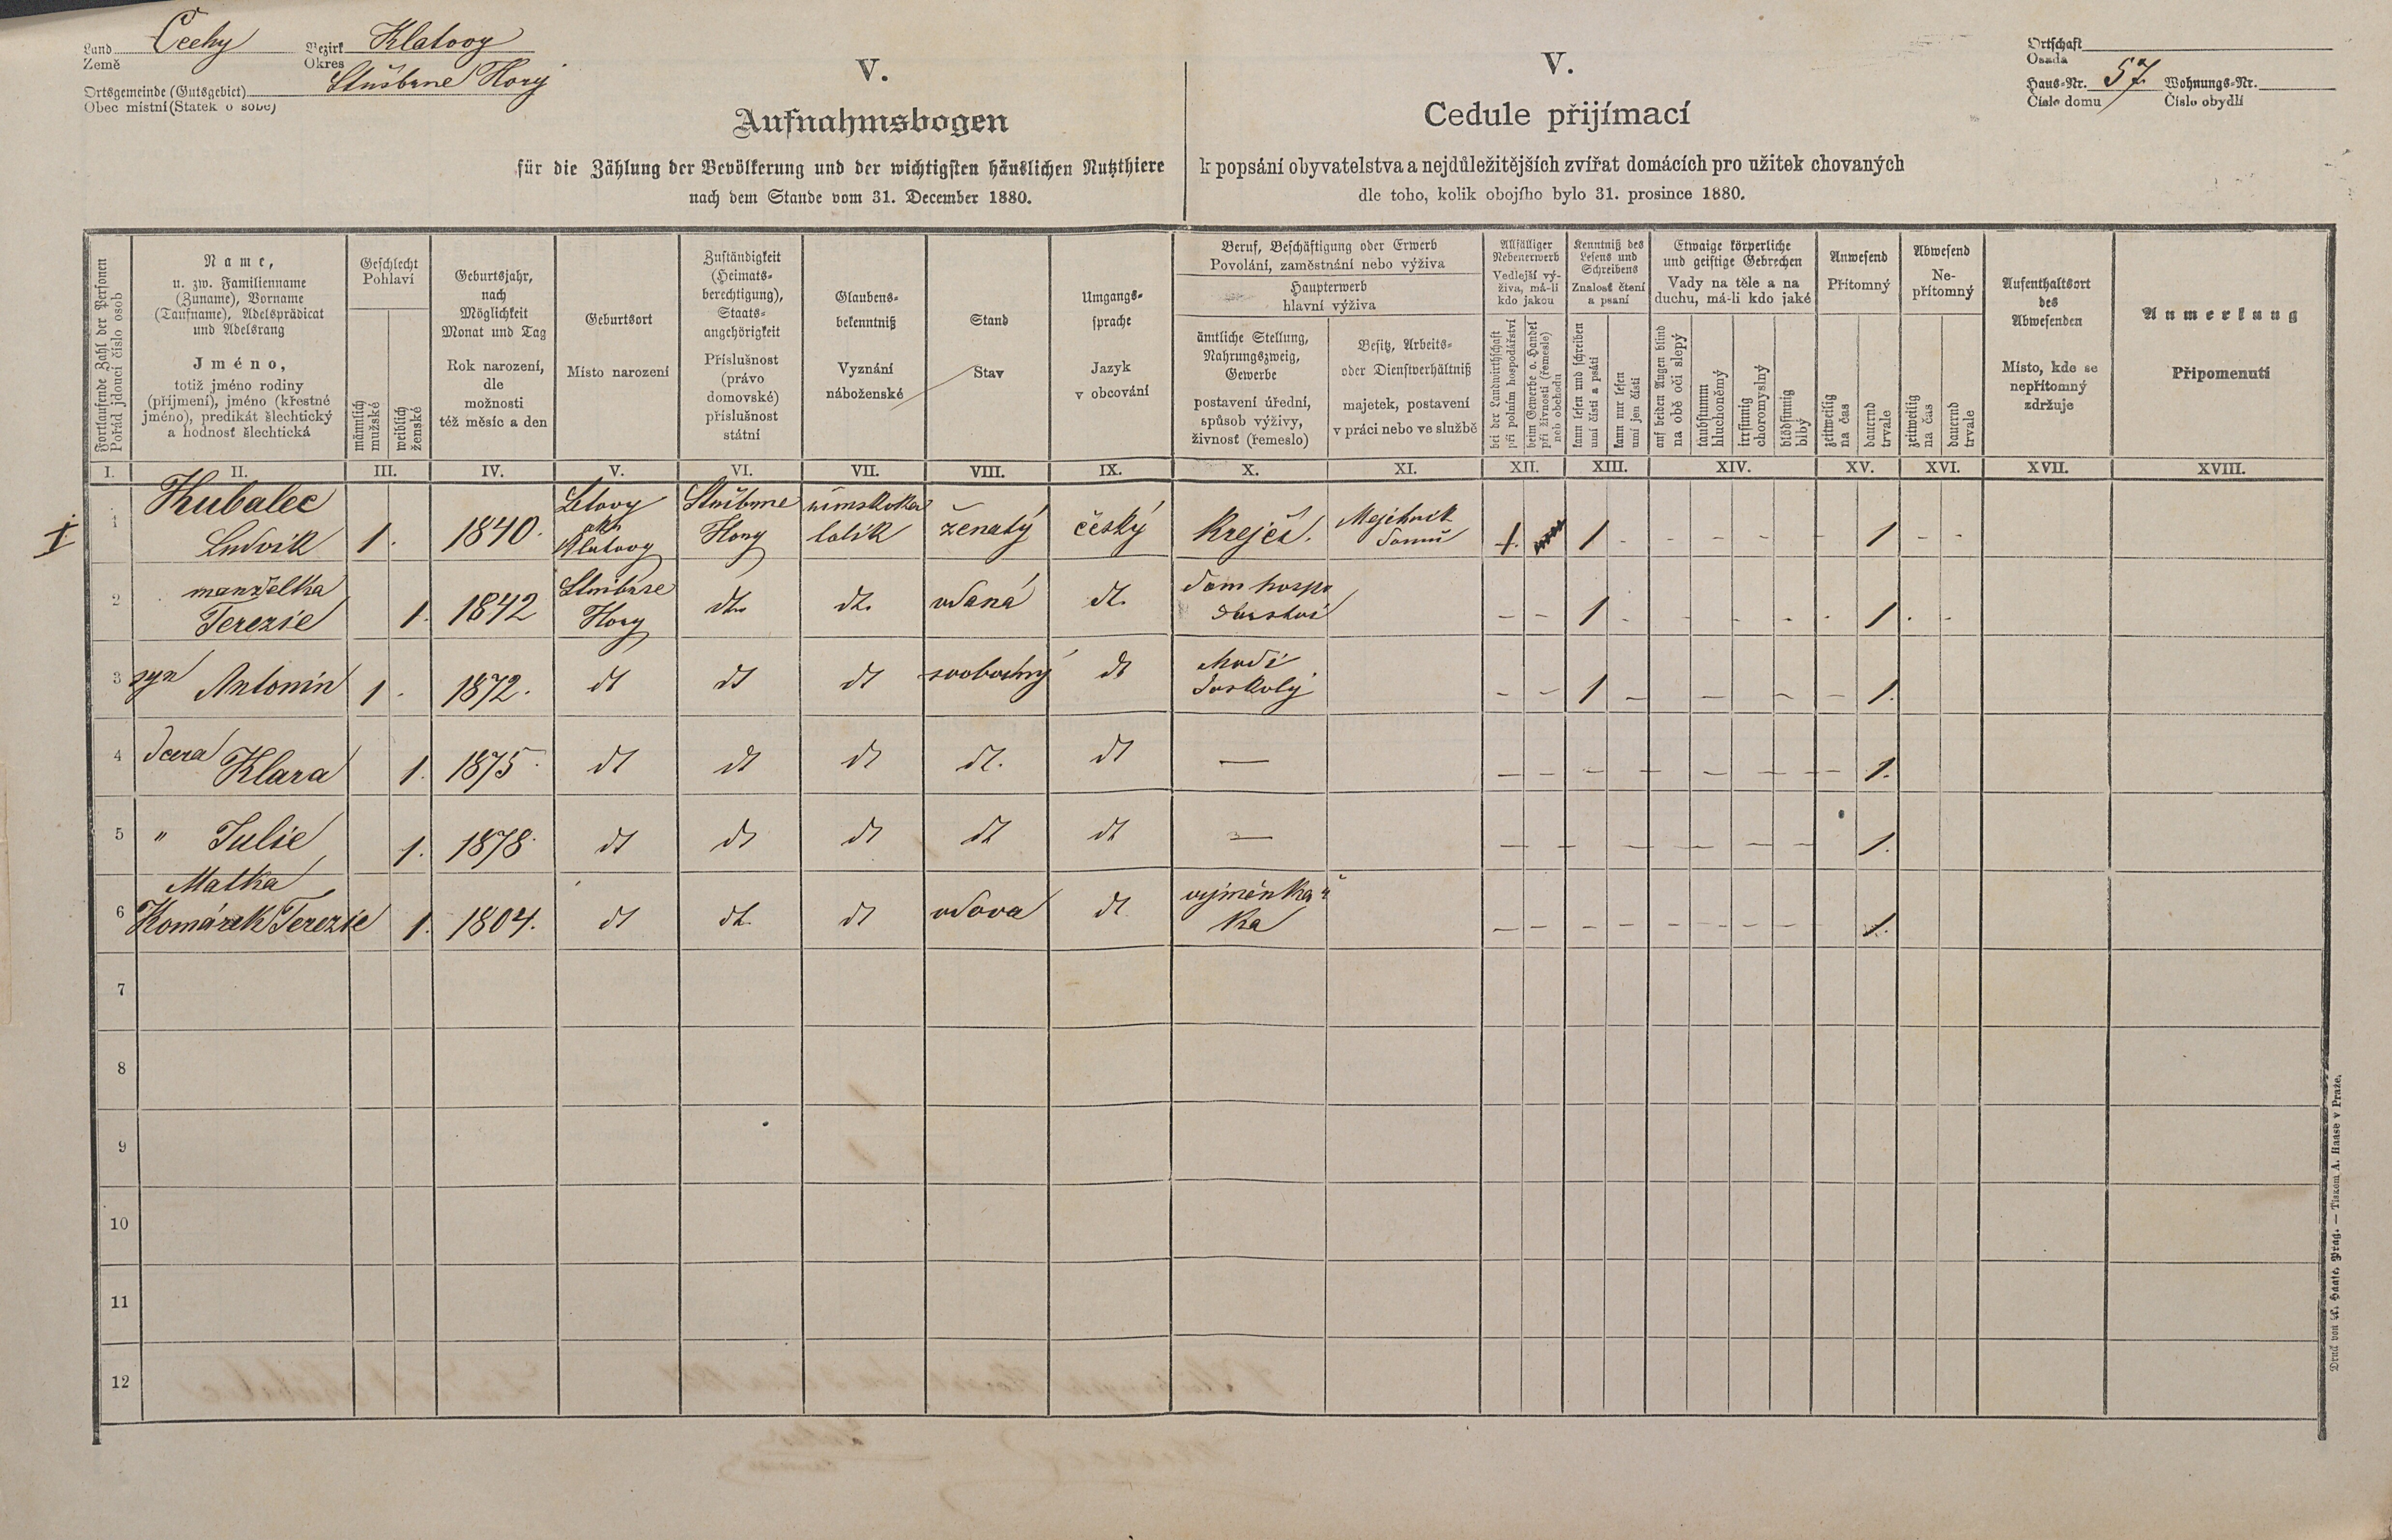 Land Čechy Bezirk Klatovy
Země Okres
Ortsgemeinde (Gutsgebiet) Stříbrne Hory
Obec místní (Statek o sobě)
V.
Aufnahmsbogen
für die Zählung der Bevölkerung und der wichtigsten häuslichen Nutzthiere
nach dem Stande vom 31. December 1880.
V.
Cedule přijímací
k popsání obyvatelstva a nejdůležitějších zvířat domácích pro užitek chovaných
dle toho, kolik obojího bylo 31. prosince 1880.
Ortschaft
Osada
Haus-Nr. 57 Wohnungs-Nr.
Číslo domu Číslo obydlí
Fortlaufende Zahl der Personen
Pořád jdoucí číslo osob
Name,
u. zw. Familienname
(Zuname), Vorname
(Taufname), Adelsprädicat
und Adelsrang
Jméno,
totiž jméno rodiny
(příjmení), jméno (křestné
jméno), predikát šlechtický
a hodnosť šlechtická
Geschlecht
Pohlaví
männlich
mužské
weiblich
ženské
Geburtsjahr,
nach
Möglichkeit
Monat und Tag
Rok narození,
dle
možnosti
též měsíc a den
Geburtsort
Místo narození
Zuständigkeit
(Heimats-
berechtigung),
Staats-
angehörigkeit
Příslušnost
(právo
domovské)
příslušnost
státní
Glaubens-
bekenntniß
Vyznání
náboženské
Stand
Stav
Umgangs-
sprache
Jazyk
v obcování
Beruf, Beschäftigung oder Erwerb
Povolání, zaměstnání nebo výživa
Haupterwerb
hlavní výživa
ämtliche Stellung,
Nahrungszweig,
Gewerbe
postavení úřední,
spůsob výživy,
živnosť (řemeslo)
Besitz, Arbeits-
oder Dienstverhältniß
majetek, postavení
v práci nebo ve službě
Allfälliger
Nebenerwerb
Vedlejší vý-
živa, má-li
kdo jakou
bei der Landwirthschaft
při polním hospodářství
beim Gewerbe o. Handel
při živnosti (řemesle)
neb obchodu
Kenntniß des
Lesens und
Schreibens
Znalosť čtení
a psaní
kann lesen und schreiben
umí čísti a psáti
kann nur lesen
umí jen čísti
Etwaige körperliche
und geistige Gebrechen
Vady na těle a na
duchu, má-li kdo jaké
auf beiden Augen blind
na obě oči slepý
taubstumm
hluchoněmý
irrsinnig
choromyslný
blödsinnig
blbý
Anwesend
Přítomný
zeitweilig
na čas
dauernd
trvale
Abwesend
Ne-
přítomný
zeitweilig
na čas
dauernd
trvale
Aufenthaltsort
des
Abwesenden
Místo, kde se
nepřítomný
zdržuje
Anmerkung
Připomenutí
I. II. III. IV. V. VI. VII. VIII. IX. X. XI. XII. XIII. XIV. XV. XVI. XVII. XVIII.
Kubalec Letovy Stříbrne římskoka
1 Ludvik 1. 1840. okr. Hory tolik ženatý český Krejčí. Majetnik 1. 1 - - - - - 1 - -
Klatovy domu
manželka Stříbrne dom hospo
2 Terezie 1. 1842 Hory dt. dt. vdaná dt. dařství - - 1 - - - - - - 1 - -
3 syn Antonín 1. 1872. dt dt dt svobodný dt chodí - - 1 - - - - 1.
do školy
4 dcera Klara 1. 1875. dt dt dt dt. dt — - - - - - - - 1.
5 " Julie 1. 1878. dt dt dt dt dt — - - - - - - 1.
Matka
6 Komárek Terezie 1. 1804. dt dt. dt vdova dt výměnkář - - - - - - - - 1.
ka
7
8
9
10
11
12
Druck von A. Haase, Prag. — Tiskem A. Haase v Praze.